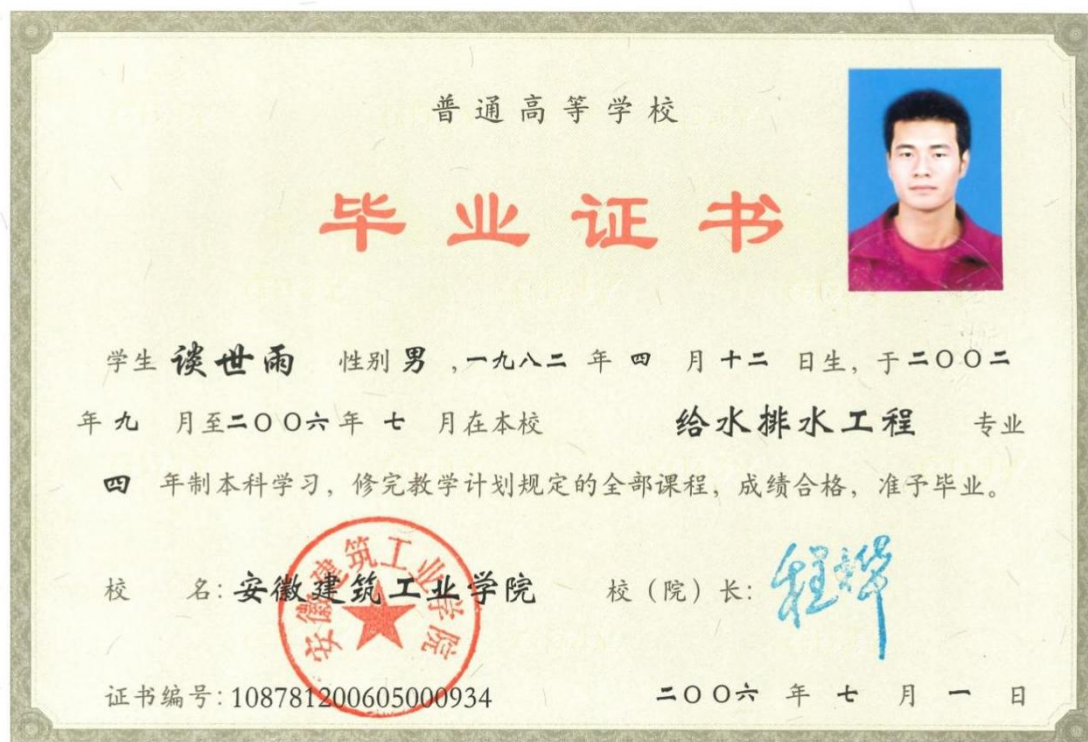 普通高等学校
毕业证书
学生 谈世雨 性别 男 ,一九八二 年 四 月 十二 日生, 于 二〇〇二
年 九 月至 二〇〇六 年 七 月在本校 给水排水工程 专业
四 年制本科学习, 修完教学计划规定的全部课程, 成绩合格, 准予毕业。
校 名: 安徽建筑工业学院 校(院)长:
安徽建筑工业学院
证书编号: 108781200605000934 二〇〇六 年 七 月 一 日